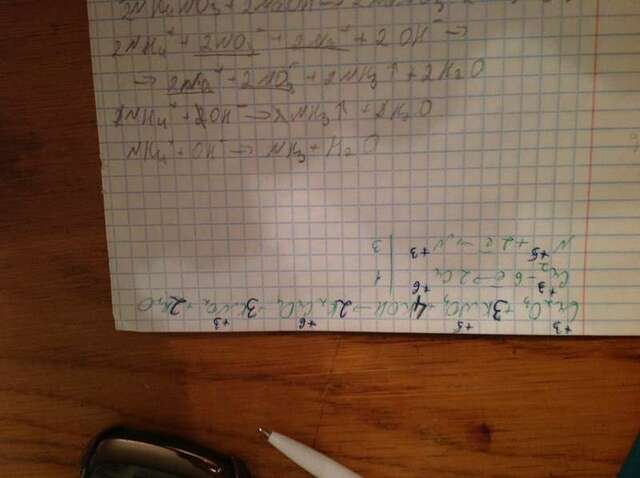 2NH₄NO₃ + 2NaOH →
2NH₄⁺ + 2NO₃⁻ + 2Na⁺ + 2OH⁻ →
→ 2Na⁺ + 2NO₃⁻ + 2NH₃↑ + 2H₂O
2NH₄⁺ + 2OH⁻ → 2NH₃↑ + 2H₂O
NH₄⁺ + OH⁻ → NH₃ + H₂O
+3 +5 +6 +3
Cr₂O₃ + 3KNO₃ + 4KOH → 2K₂CrO₄ + 3KNO₂ + 2H₂O
+3 +6
Cr₂ - 6e̅ → 2Cr | 1
+5 +3
N + 2e̅ → N | 3